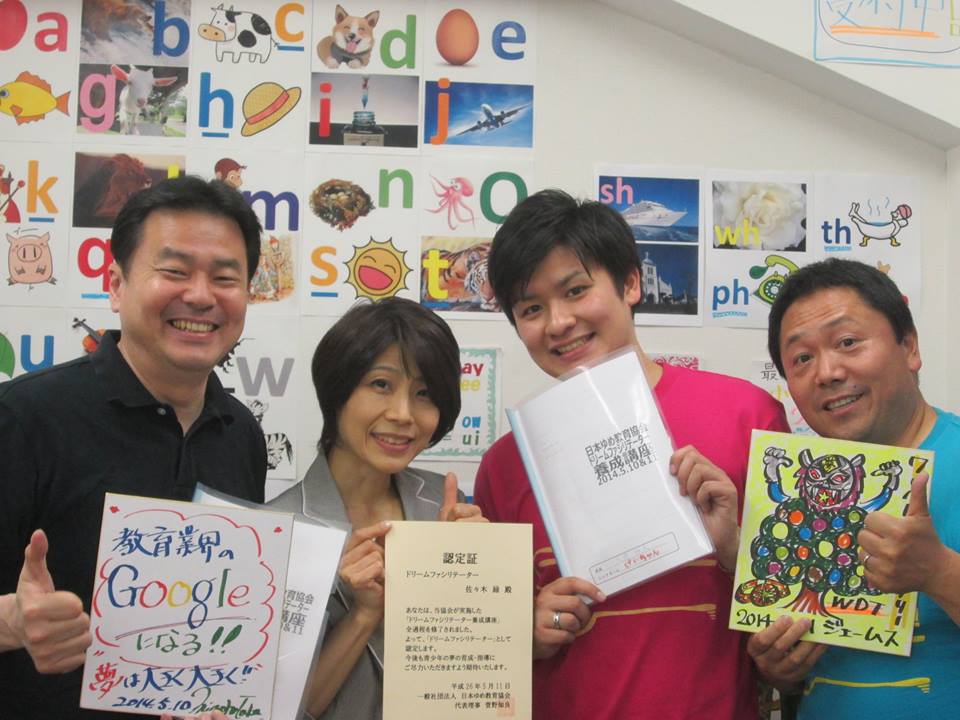 a
b
c
d
e
g
h
i
j
k
m
n
o
q
s
t
u
w
sh
wh
th
ph
ow
ui
教育業界の
Google
になる!!
夢は大きく大きく!!
2014.5.10
認定証
ドリームファシリテーター
佐々木 緑 殿
あなたは、当協会が実施した
「ドリームファシリテーター養成講座」
全過程を修了されました。
よって、「ドリームファシリテーター」として
認定します。
今後も青少年の夢の育成・指導に
ご尽力いただきますよう期待いたします。
平成26年5月11日
一般社団法人 日本ゆめ教育協会
代表理事 菅野知良
日本ゆめ教育協会
ドリームファシリテーター
養成講座
2014.5.10&11
けいちゃん
WDT
ジェームス